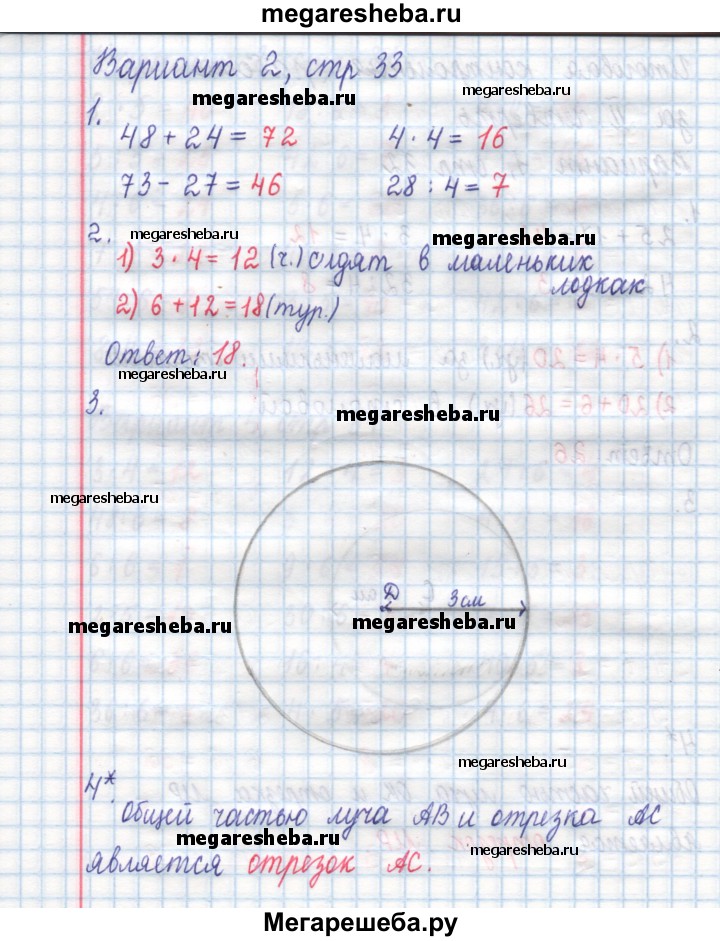 megaresheba.ru
Вариант 2, стр 33
megaresheba.ru
megaresheba.ru
1.
48 + 24 = 72 4 · 4 = 16
73 - 27 = 46 28 : 4 = 7
megaresheba.ru
megaresheba.ru
2.
1) 3 · 4 = 12 (ч.) сидят в маленьких
лодках
2) 6 + 12 = 18 (тур.)
Ответ: 18.
megaresheba.ru
megaresheba.ru
3.
megaresheba.ru
megaresheba.ru
D 3 см
megaresheba.ru
megaresheba.ru
megaresheba.ru
megaresheba.ru
4*.
Общей частью луча АВ и отрезка АС
megaresheba.ru
megaresheba.ru
является отрезок АС.
Мегарешеба.ру